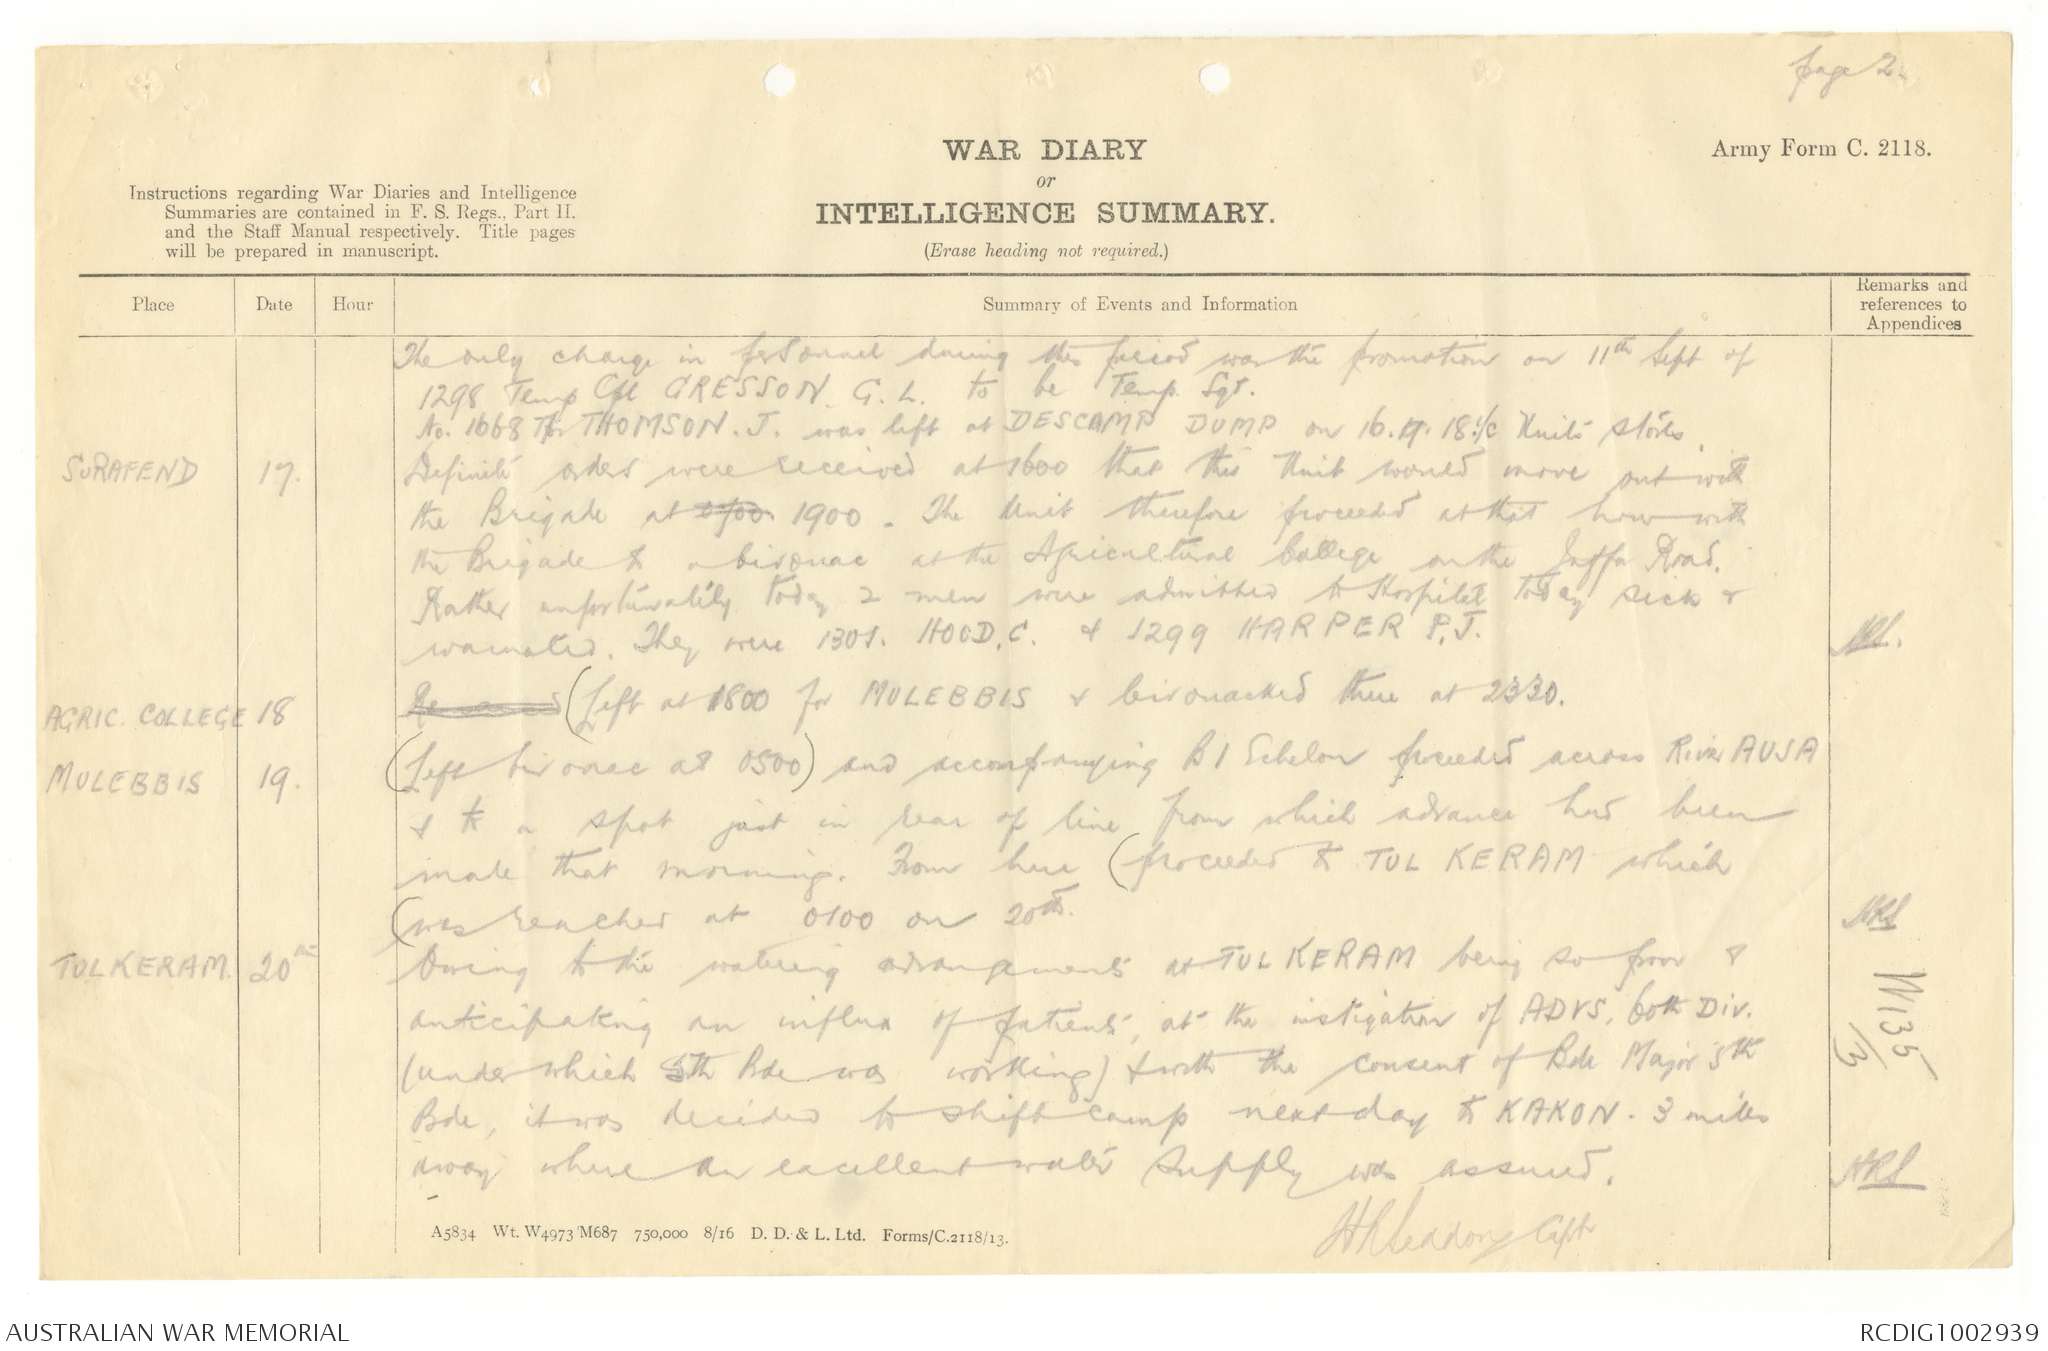 page 2.
WAR DIARY
or
INTELLIGENCE SUMMARY.
(Erase heading not required.)
Army Form C. 2118.
Instructions regarding War Diaries and Intelligence
Summaries are contained in F. S. Regs., Part II.
and the Staff Manual respectively. Title pages
will be prepared in manuscript.
Place Date Hour Summary of Events and Information Remarks and references to Appendices
The only change in personnel during this period was the promotion on 11th Sept of
1298 Temp Cpl GRESSON. G. L. to be Temp. Sgt.
No. 1668 Tpr THOMSON. J. was left at DESCAMP DUMP on 16.9.18 i/c Units stores.
SURAFEND 17. Definite orders were received at 1600 that this Unit would move out with
the Brigade at 1900. The Unit therefore proceeded at that hour with
the Brigade to a bivouac at the Agricultural College on the Jaffa Road.
Rather unfortunately today 2 men were admitted to Hospital today sick &
evacuated. They were 1301. HOOD. C. & 1299 HARPER P.J. HRS.
AGRIC. COLLEGE 18 (Left at 1800 for MULEBBIS & bivouacked there at 2330.
MULEBBIS 19. (Left bivouac at 0500) and accompanying B1 Echelon proceeded across River AUJA
& to a spot just in rear of line from which advance had been
made that morning. From here (proceeded to TUL KERAM which
(was reached at 0100 on 20th. HRS
TUL KERAM. 20th Owing to the watering arrangements at TUL KERAM being so poor &
anticipating an influx of patients, at the instigation of ADVS, 60th Div.
(under which 5th Bde was working) & with the consent of Bde Major 5th
Bde, it was decided to shift camp next day to KAKON - 3 miles
away where an excellent water supply was assured. HRS
W135
/3
HRSeddon Capt
A5834 Wt. W4973/M687 750,000 8/16 D. D. & L. Ltd. Forms/C.2118/13.
AUSTRALIAN WAR MEMORIAL
RCDIG1002939